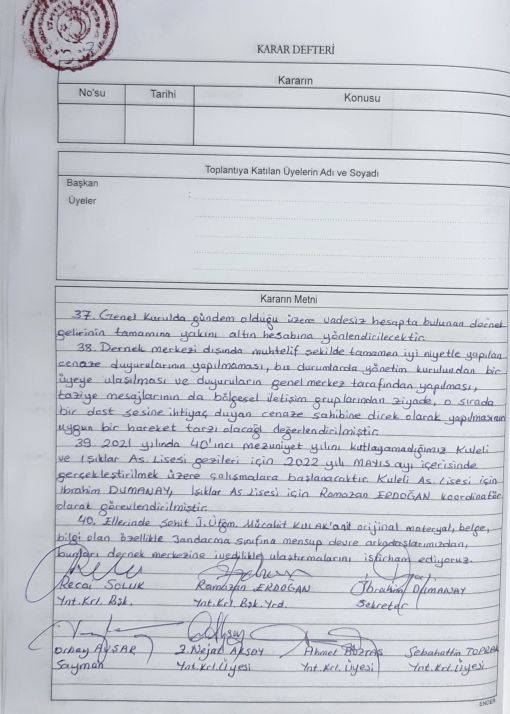 KARAR DEFTERİ
Kararın
No'su Tarihi Konusu
Toplantıya Katılan Üyelerin Adı ve Soyadı
Başkan
Üyeler
Kararın Metni
37. Genel Kurulda gündem olduğu üzere vadesiz hesapta bulunan dernek
gelirinin tamamına yakını altın hesabına yönlendirilecektir.
38. Dernek merkezi dışında muhtelif şekilde tamamen iyi niyetle yapılan
cenaze duyurularının yapılmaması, bu durumlarda yönetim kurulundan bir
üyeye ulaşılması ve duyuruların genel merkez tarafından yapılması,
taziye mesajlarının da bölgesel iletişim gruplarından ziyade, o sırada
bir dost sesine ihtiyaç duyan cenaze sahibine direk olarak yapılmasının
uygun bir hareket tarzı olacağı değerlendirilmiştir.
39. 2021 yılında 40'ıncı mezuniyet yılını kutlayamadığımız Kuleli
ve Işıklar As. Lisesi gezileri için 2022 yılı MAYIS ayı içerisinde
gerçekleştirilmek üzere çalışmalara başlanacaktır. Kuleli As. Lisesi için
İbrahim DUMANAY, Işıklar As Lisesi için Ramazan ERDOĞAN koordinatör
olarak görevlendirilmiştir.
40. Ellerinde Şehit J. Ütğm. Mücahit KULAK'a ait orijinal materyal, belge,
bilgi olan özellikle Jandarma sınıfına mensup devre arkadaşlarımızdan,
bunları dernek merkezine ivedilikle ulaştırmalarını istirham ediyoruz.
Recai SOLUK Ramazan ERDOĞAN İbrahim DUMANAY
Ynt. Krl. Bşk. Ynt. Krl. Bşk. Yrd. Sekreter
Orbay AVŞAR 2. Nejat AKSOY Ahmet Sebahattin TOPRAK
Sayman Ynt. Krl. Üyesi Ynt. Krl. Üyesi Ynt. Krl. Üyesi
ENDER